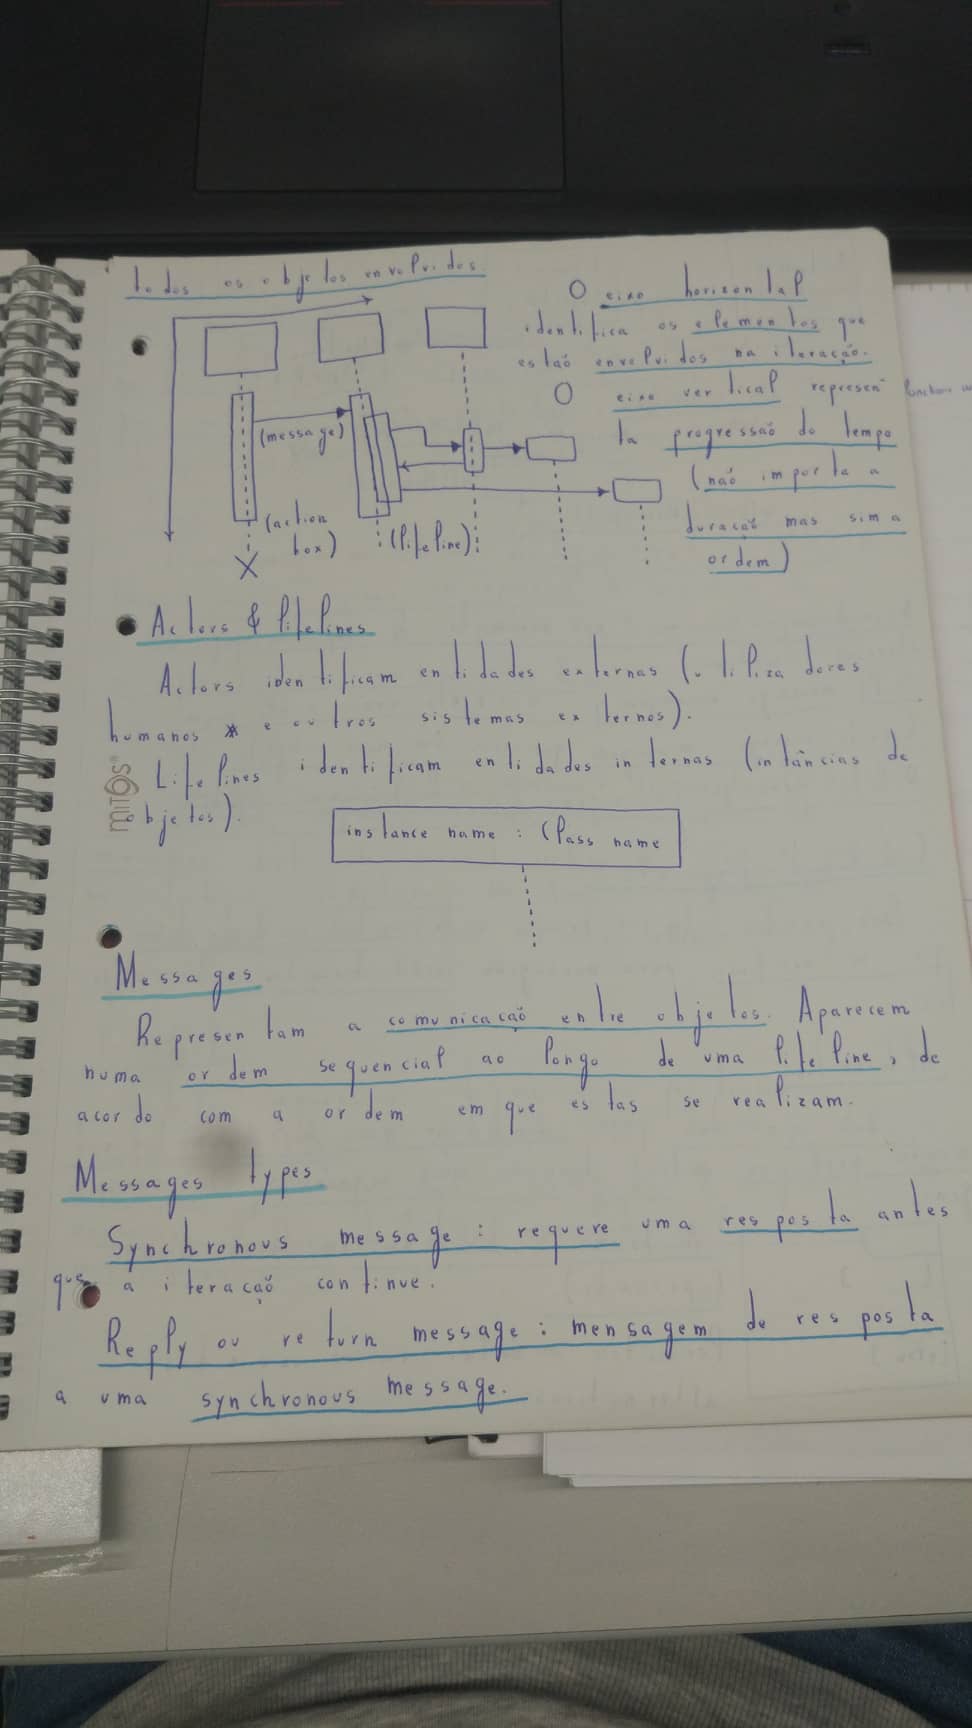 todos os objetos envolvidos
O eixo horizontal
identifica os elementos que
estaõ envolvidos na iteração.
O eixo vertical represen
ta progressaõ do tempo
(naõ importa a
duracaõ mas sim a
ordem)
(message)
(action
box)
(lifeline)
Actors & lifelines
Actors identificam entidades externas (utilizadores
humanos * e outros sistemas externos).
Lifelines identificam entidades internas (intâncias de
objetos).
MITOS®
instance name : Class name
Messages
Representam a comunicacaõ entre objetos. Aparecem
numa ordem sequencial ao longo de uma lifeline, de
acordo com a ordem em que estas se realizam.
Messages types
Synchronous message : requere uma resposta antes
que a iteracaõ continue.
Reply ou return message : mensagem de resposta
a uma synchronous message.